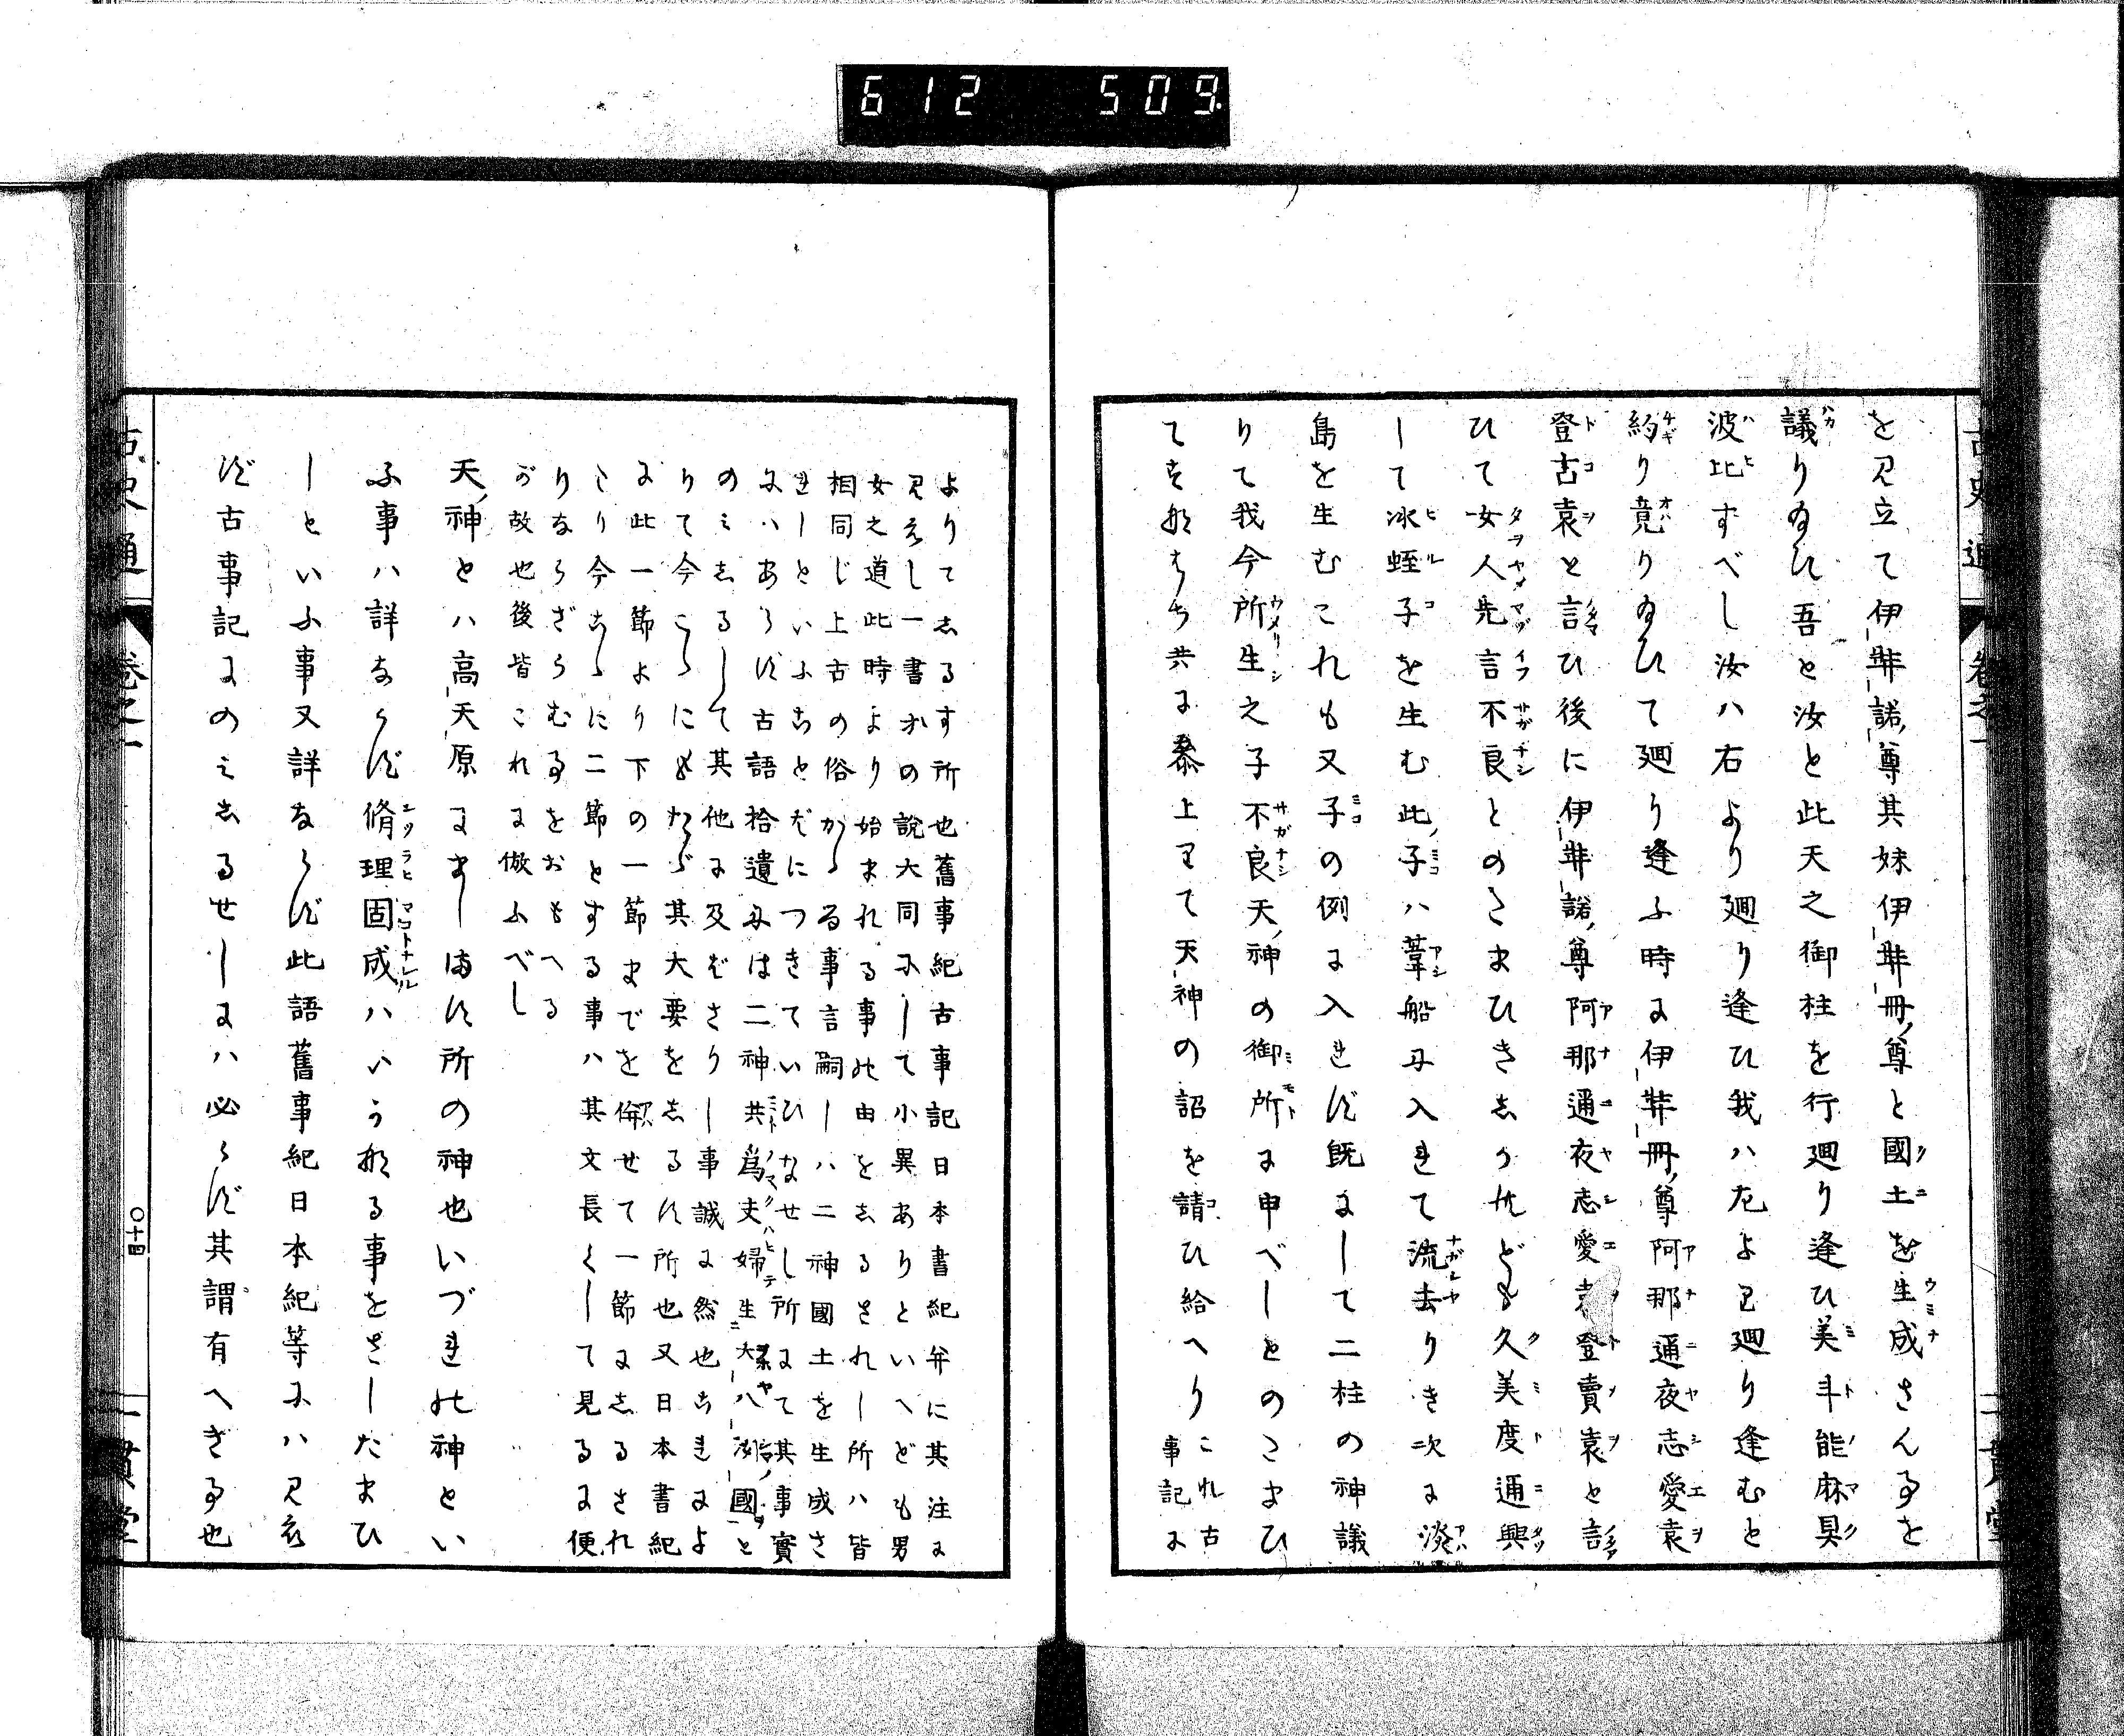 612 509.
古史通 卷之一
を見立て伊弉諾尊其妹伊弉冊尊と國土を生成さん事を
議り給ひ吾と汝と此天之御柱を行廻り逢ひ美斗能麻具
波比すべし汝ハ右より廻り逢ひ我ハ左より廻り逢むと
約り竟り給ひて廻り逢ふ時に伊弉冊尊阿那邇夜志愛袁
登古袁と言ひ後に伊弉諾尊阿那邇夜志愛袁登賣袁と言
ひて女人先言不良とのたまひきしかれども久美度邇興
して氷蛭子を生む此子ハ葦船に入れて流去りき次に淡
島を生むこれも又子の例に入れず既にして二柱の神議
りて我今所生之子不良天神の御所に申べしとのたまひ
てすなはち共に參上りて天神の詔を請ひ給へりこれ古
事記に
よりてしるす所也舊事紀古事記日本書紀弁に其注に
見えし一書等の說大同にして小異ありといへども男
女之道此時より始まれる事の由をしるされし所ハ皆
相同じ上古の俗かゝる事言嗣しハ二神國土を生成さ
れしといふことばにつきていひなせし所にて其事實
にハあらず古語拾遺には二神共爲夫婦生大八洲國と
のミしるして其他に及ばざりし事誠に然也これによ
りて今こゝにもたゞ其大要をしるす所也又日本書紀
に此一節より下の一節までを併せて一節にしるされ
たり今こゝに二節とする事ハ其文長くして見るに便
りならざらむ事をおもへる
が故也後皆これに倣ふべし
天神とハ高天原にまします所の神也いづれの神とい
ふ事ハ詳ならず脩理固成ハいかなる事をさしたまひ
しといふ事又詳ならず此語舊事紀日本紀等にハ見え
ず古事記にのミしるせしにハ必らず其謂有へき事也
古史通 卷之一 〇十四 一貫堂